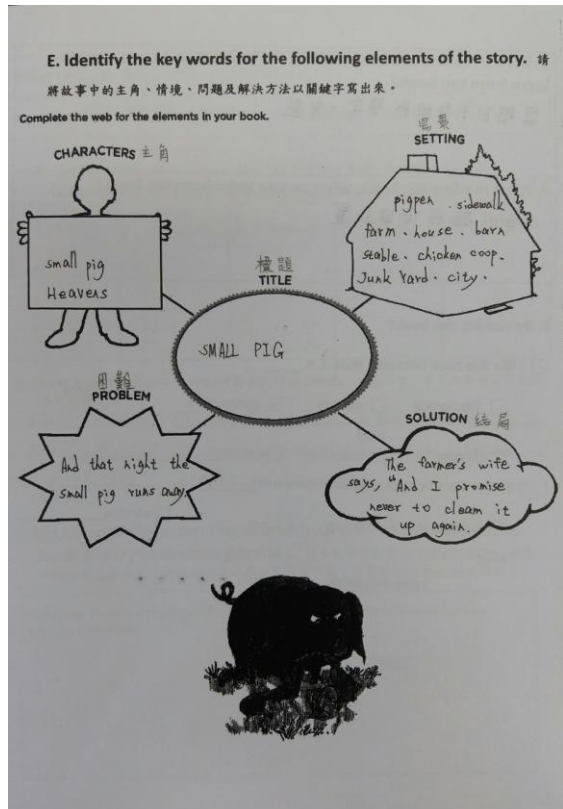 E. Identify the key words for the following elements of the story. 請
將故事中的主角、情境、問題及解決方法以關鍵字寫出來。
Complete the web for the elements in your book.
CHARACTERS 主角
small pig
Heavens
背景
SETTING
pigpen . sidewalk
farm、house、barn
stable、chicken coop.
Junk Yard、city.
標題
TITLE
SMALL PIG
困難
PROBLEM
And that night the
small pig runs away.
SOLUTION 結局
The farmer's wife
says, "And I promise
never to clean it
up again.